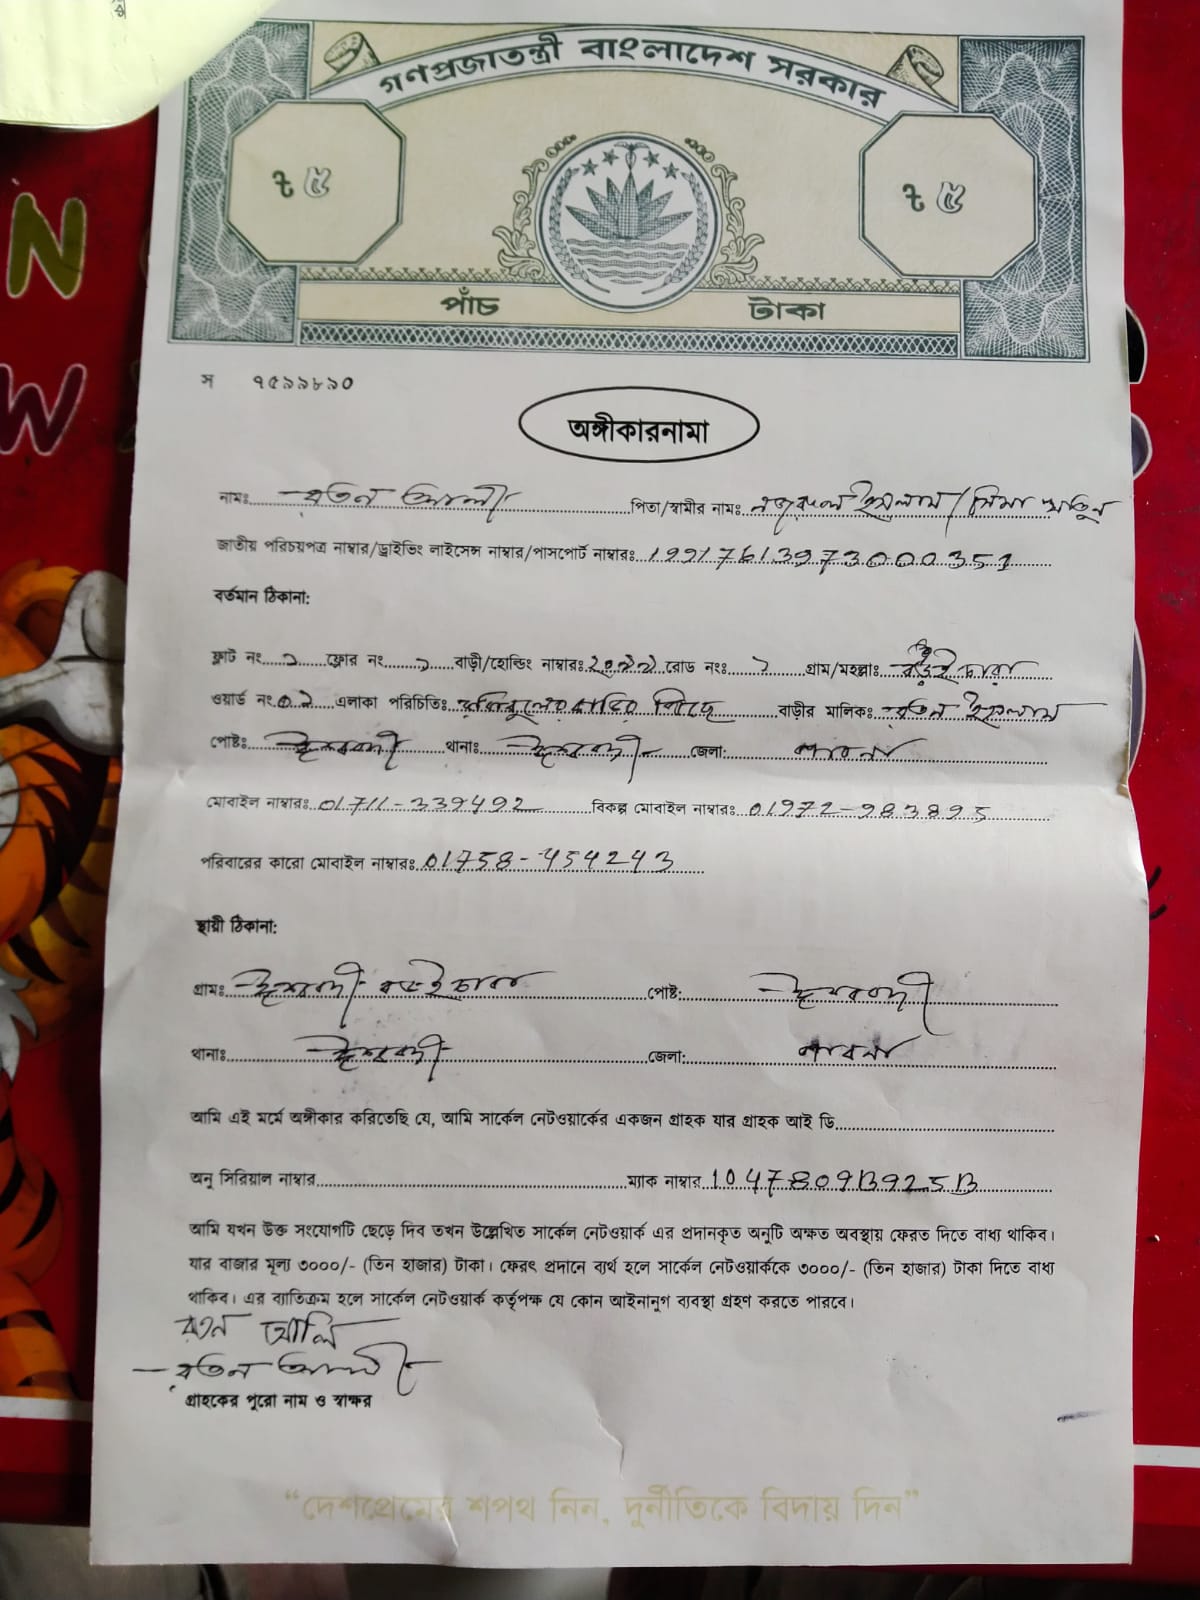 গণপ্রজাতন্ত্রী বাংলাদেশ সরকার
৳ ৫ ৳ ৫
পাঁচ টাকা
স ৭৫৯৯৮৯০
অঙ্গীকারনামা
নামঃ রতন আলী পিতা/স্বামীর নামঃ নজরুল ইসলাম/সিমা খাতুন
জাতীয় পরিচয়পত্র নাম্বার/ড্রাইভিং লাইসেন্স নাম্বার/পাসপোর্ট নাম্বারঃ 19917613973000351
বর্তমান ঠিকানা:
ফ্লাট নং ১ ফ্লোর নং ১ বাড়ী/হোল্ডিং নাম্বারঃ রোড নংঃ গ্রাম/মহল্লাঃ বড়ইচারা
ওয়ার্ড নং ০১ এলাকা পরিচিতিঃ পিছে বাড়ীর মালিকঃ রতন ইসলাম
পোষ্টঃ ঈশ্বরদী থানাঃ ঈশ্বরদী জেলা: পাবনা
মোবাইল নাম্বারঃ 01711-339492 বিকল্প মোবাইল নাম্বারঃ 01972-983895
পরিবারের কারো মোবাইল নাম্বারঃ 01758-454243
স্থায়ী ঠিকানা:
গ্রামঃ ঈশ্বরদী বড়ইচারা পোষ্ট: ঈশ্বরদী
থানাঃ ঈশ্বরদী জেলা: পাবনা
আমি এই মর্মে অঙ্গীকার করিতেছি যে, আমি সার্কেল নেটওয়ার্কের একজন গ্রাহক যার গ্রাহক আই ডি
অনু সিরিয়াল নাম্বার ম্যাক নাম্বার 1047809B925B
আমি যখন উক্ত সংযোগটি ছেড়ে দিব তখন উল্লেখিত সার্কেল নেটওয়ার্ক এর প্রদানকৃত অনুটি অক্ষত অবস্থায় ফেরত দিতে বাধ্য থাকিব।
যার বাজার মূল্য ৩০০০/- (তিন হাজার) টাকা। ফেরৎ প্রদানে ব্যর্থ হলে সার্কেল নেটওয়ার্ককে ৩০০০/- (তিন হাজার) টাকা দিতে বাধ্য
থাকিব। এর ব্যাতিক্রম হলে সার্কেল নেটওয়ার্ক কর্তৃপক্ষ যে কোন আইনানুগ ব্যবস্থা গ্রহণ করতে পারবে।
রতন আলি
রতন আলী
গ্রাহকের পুরো নাম ও স্বাক্ষর
“দেশপ্রেমের শপথ নিন, দুর্নীতিকে বিদায় দিন”